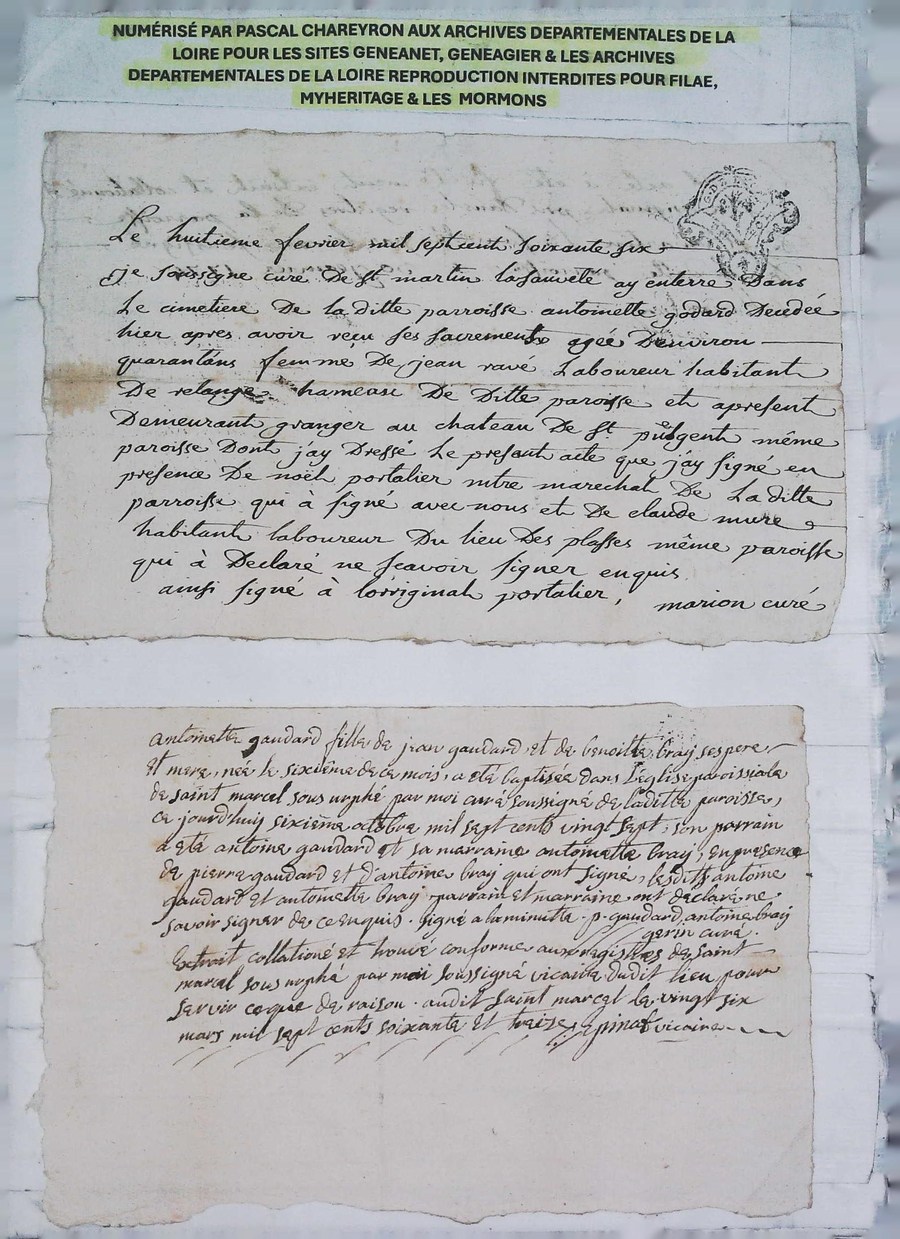 NUMÉRISÉ PAR PASCAL CHAREYRON AUX ARCHIVES DEPARTEMENTALES DE LA
LOIRE POUR LES SITES GENEANET, GENEAGIER & LES ARCHIVES
DEPARTEMENTALES DE LA LOIRE REPRODUCTION INTERDITES POUR FILAE,
MYHERITAGE & LES MORMONS
Le huitieme fevrier mil sept cent soixante six
je soussigne curé De st martin lasauveté ay enterré Dans
Le cimetiere De la ditte parroisse antoinette godard Decedée
hier apres avoir reçu ses sacrements agée D'environ
quarantans femme De jean ravé Laboureur habitant
De relange hameau De Ditte paroisse et apresent
Demeurant granger au chateau De st pulgent même
paroisse Dont jay Dressé Le present acte que j'ay signé en
presence De noël portalier mtre marechal De La ditte
parroisse qui à signé avec nous et De claude mure
habitant laboureur Du lieu Des plasses même paroisse
qui à Declaré ne scavoir signer enquis
ainsi signé à lorriginal portalier, marion curé
antoinette gaudard fille de jean gaudard et de benoitte bray ses pere
et mere, née le sixciême de ce mois, a eté baptisée dans l'eglise paroissiale
de saint marcel sous urphé par moi curé soussigné de ladite paroisse,
ce jourd'huy sixième octobre mil sept cents vingt sept, son parrain
a eté antoine gaudard et sa marraine antoinette bray, en presence
de pierre gaudard et d'antoine bray qui ont signé, lesdits antoine
gaudard et antoinette bray parrain et marraine ont declaré ne
savoir signer de ce enquis. signé a la minutte. p. gaudard, antoine bray
gerin curé.
Extrait collationé et trouvé conforme aux registres de saint
marcel sous urphé par moi soussigné vicaire dudit lieu pour
servir ce que de raison. audit saint marcel le vingt six
mars mil sept cents soixante et treize, epinat vicaire